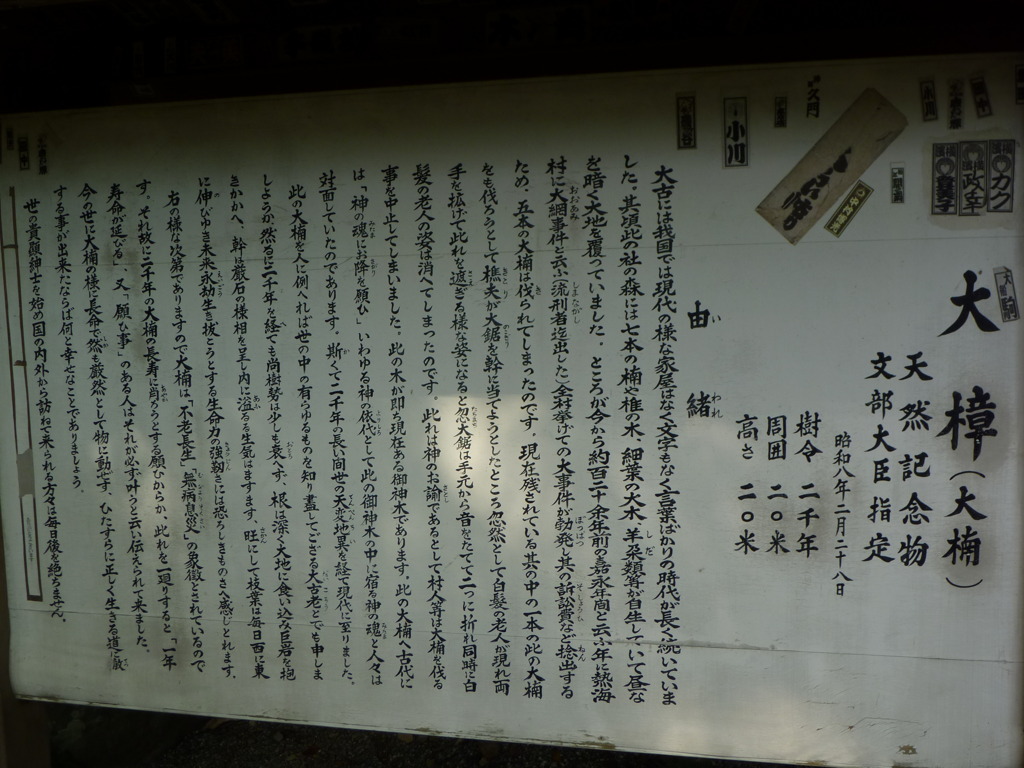 大樟（大楠）
天然記念物
文部大臣指定
昭和八年二月二十八日
樹令 二千年
周囲 二〇米
高さ 二〇米
由緒
いわれ
大古には我国では現代の様な家屋はなく文字もなく言葉ばかりの時代が長く続いていま
した。其頃此の社の森には七本の楠や椎の木、細葉の大木、羊朶類等が自生していて昼な
を暗く大地を覆っていました。ところが今から約百二十余年前の嘉永年間と云ふ年に熱海
村に大網事件と云ふ（流刑者迄出した）全村挙げての大事件が勃発し其の訴訟費など捻出する
ため、五本の大楠は伐られてしまったのです。現在残されている其の中の一本の此の大楠
をも伐ろうとして樵夫が大鋸を幹に当てようとしたところ忽然として白髪の老人が現れ両
手を拡げて此れを遮ぎる様な姿になると忽ち大鋸は手元から音をたてて二つに折れ同時に白
髪の老人の姿は消へてしまったのです。此れは神のお諭であるとして村人等は大楠を伐る
事を中止してしまいました。此の木が即ち現在ある御神木であります。此の大楠へ古代に
は「神の魂にお降を願ひ」いわゆる神の依代として此の御神木の中に宿る神の魂と人々は
対面していたのであります。斯くて二千年の長い間世の天変地異を経て現代に至りました。
此の大楠を人に例へれば世の中の有らゆるものを知り盡してござる大古老とでも申しま
しようか然るに二千年を経ても尚樹勢は少しも衰へず、根は深く大地に食い込み巨岩を抱
きかかへ、幹は巌石の様相を呈し内に溢る生気はますます旺にして枝葉は毎日百に東
に伸びゆき未来永劫生き抜とうとする生命力の強靱さには恐ろしきものさへ感じとれます。
右の様な次第でありますので大楠は「不老長生」「無病息災」の象徴とされているので
す。それ故に二千年の大楠の長寿に肖ろうとする願ひからか、此れを一廻りすると「一年
寿命が延びる」、又「願ひ事」のある人はそれが必ず叶うと云い伝えられて来ました。
今の世に大楠の様に長命で然も厳然として物に動せず、ひたすらに正しく生きる道に徹
する事が出来たならば何と幸せなことでありましょう。
世の貴顕紳士を始め国の内外から訪ねて来られる方々は毎日後を絶ちません。
小川
久門